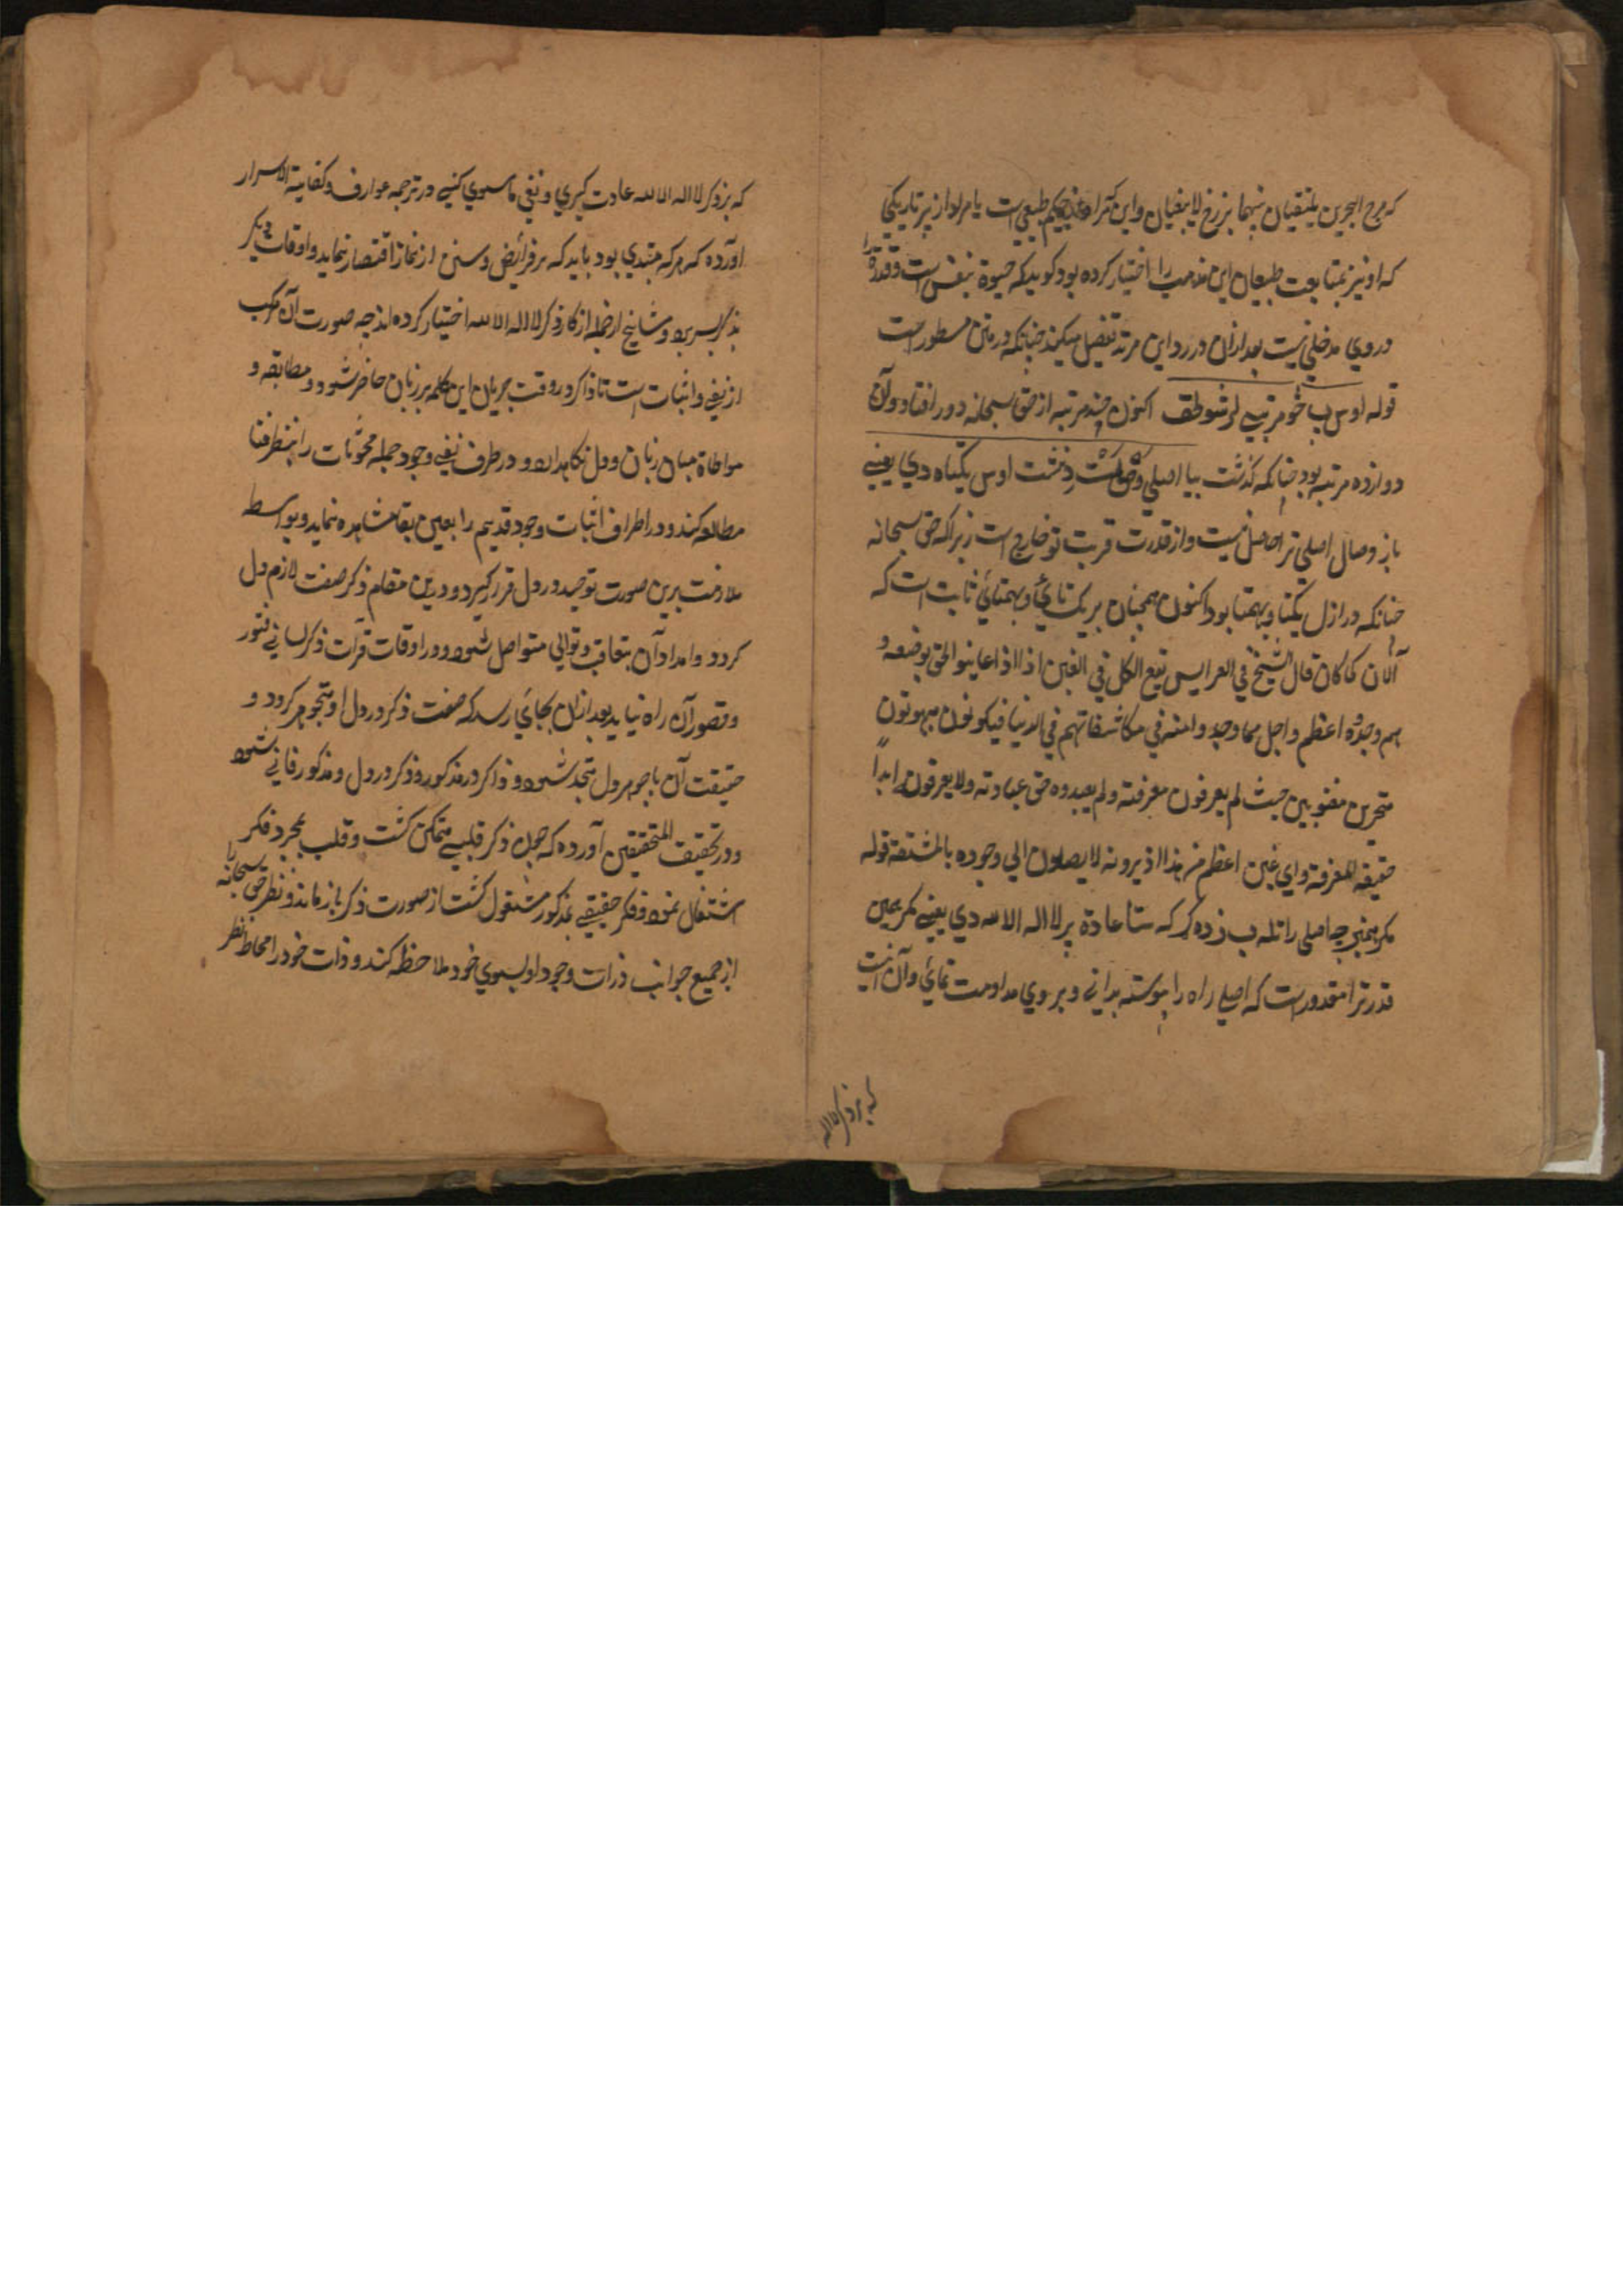 که مرج البحرین یلتقیان بینهما برزخ لایبغیان و این حکیم طبیعی است یا مراد از پیر تاریکی
که او نیز بمتابعت طبیعیان این مذهب را اختیار کرده بود گوید که حیوة بنفس است و قدرة را
در وی مدخلی نیست بعد ازان در رد این مرتد تفصیل میکند چنانکه در متن مسطور است
قوله اوس اکنون چند مرتبه از حق سبحانه دور افتاد و آن
دوازده مرتبه بود چنانکه گذشت بیا اصلی اوس یکتاه دی یعنی
باز وصال اصلی ترا حاصل نیست و از قدرت قربت تو خارج است زیرا که حق سبحانه
چنانکه در ازل یکتا و بیهمتا بود اکنون همچنان بر یکتائی و بیهمتائی ثابت است که
الآن کما کان قال الشیخ فی العرایس یقع الکل فی الغبن اذا عاینوا الحق بوصفه و
هم وجدوه اعظم و اجل مما وجدوا منه فی مکاشفاتهم فی الدنیا فیکونون مبهوتون
متحیرین مغبونین حیث لم یعرفون معرفته و لم یعبدوه حق عبادته و لا یعرفون ابدا
حقیقة المعرفة و ای غبن اعظم من هذا اذ یرونه لا یصلون الی وجوده بالمشقة قوله
مگر همین چه اصلی را که ستا عادة پر لا اله الا الله دی یعنی مگر همین
قدر ترا مقدور است که اصلی راه را پیوسته بدانی و بر وی مداومت نمائی و آن اینست
که بر ذکر لا اله
که بر ذکر لا اله الا الله عادت گیری و نفی ما سوی کنی در ترجمه عوارف و کفایة الاسرار
آورده که هر که مبتدی بود باید که بر فرایض و سنن از نماز اقتصار نماید و اوقات دیگر
بذکر بسر برد و مشایخ از جمله اذکار ذکر لا اله الا الله اختیار کرده اند چه صورت آن مرکب
از نفی و اثبات است تا ذاکر در وقت جریان این کلمه بر زبان حاضر شود و مطابقه و
مواطاة میان زبان و دل نگاهدارد و در طرف نفی وجود جمله محدثات را بنظر فنا
مطالعه کند و در اطراف اثبات وجود قدیم را بعین بقا مشاهده نماید و بواسطه
ملازمت برین صورت توحید در دل قرار گیرد و درین مقام ذکر صفت لازم دل
گردد و امداد آن بتعاقب و توالی متواصل شود و در اوقات فترات ذکر لسانی فتور
و قصور آن راه نیابد بعد ازان بجای رسد که صفت ذکر در دل او متجوهر گردد و
حقیقت آن با جوهر دل متحد شود و ذاکر در مذکور و ذکر در دل و مذکور فانی شود
و در تحقیق المحققین آورده که چون ذکر قلبی متمکن گشت و قلب بمجرد فکر
اشتغال نمود و فکر حقیقی بمذکور مشغول گشت از صورت ذکر باز ماند و نظر حق سبحانه را
از جمیع جوانب ذرات وجود او بسوی خود ملاحظه کند و ذات خود را محاط نظر